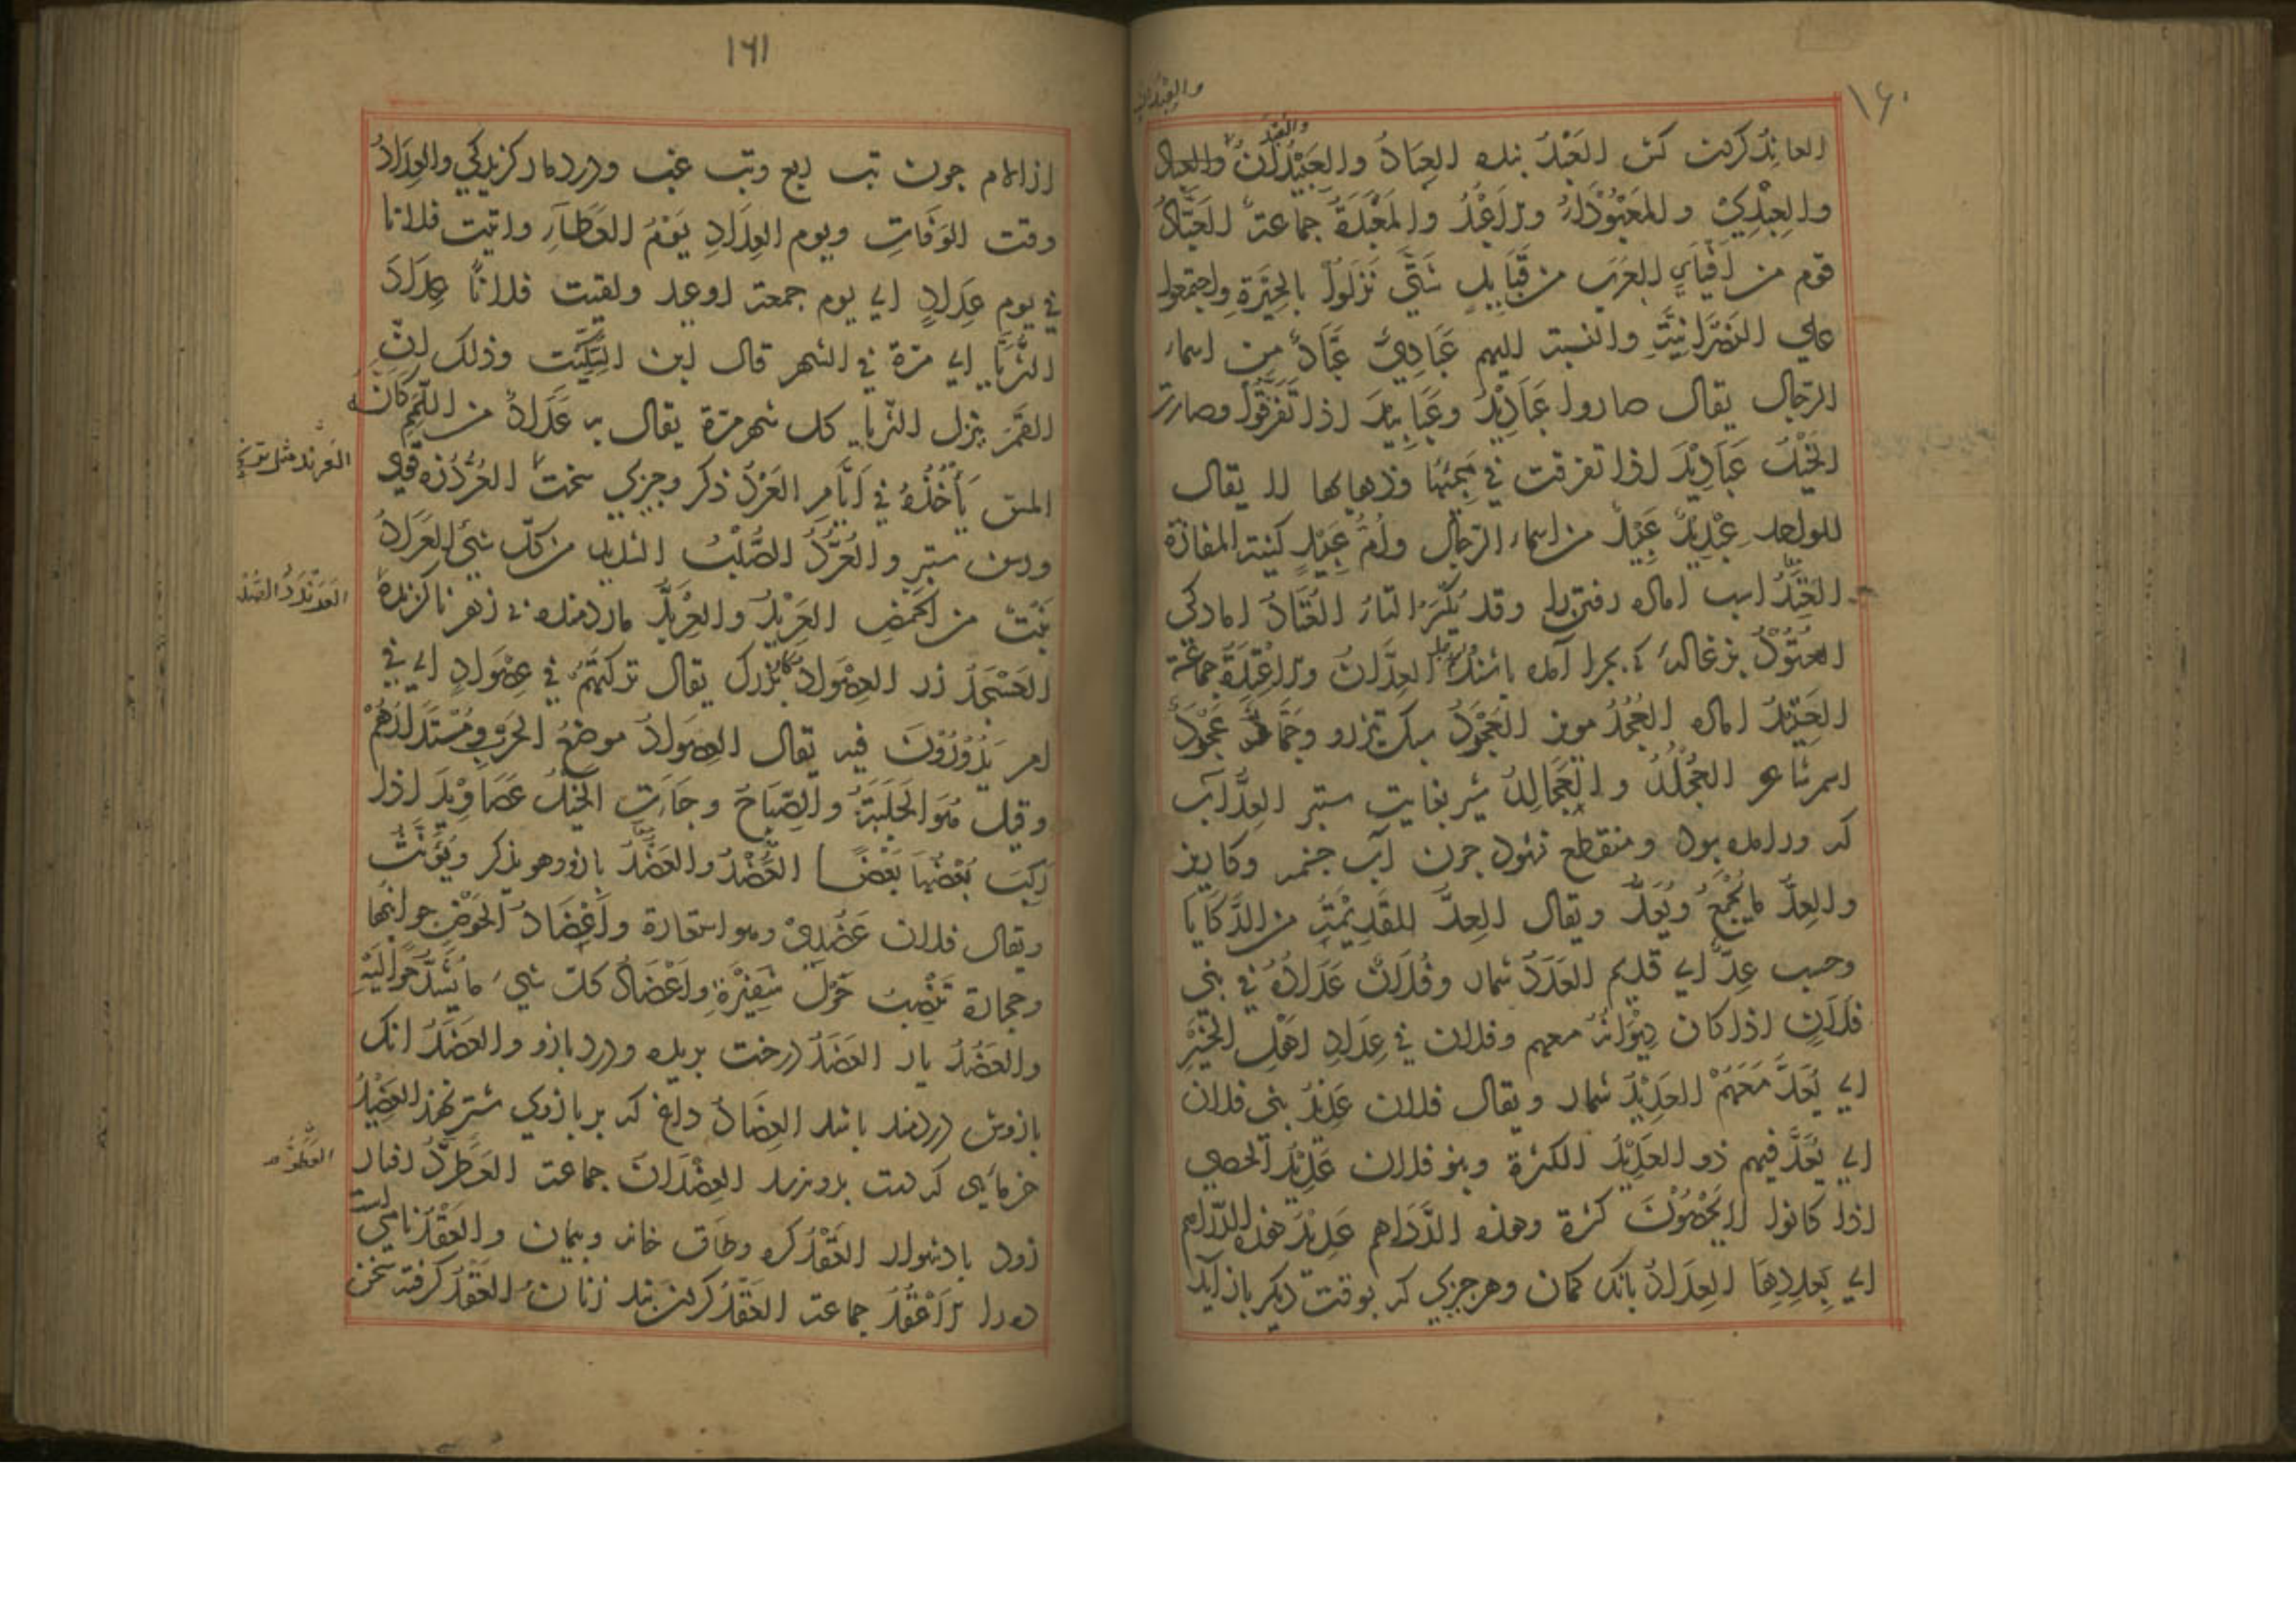 ١٦٠
والعبدان
والعبد
العابد كرفت كش العَبْدُ بنده العِبَادُ والعَبِيْدُ
والعِبْدِيّ والمَعْبُوْدَاءُ والأَعْبُدُ والمَعْبَدَةُ جماعة العَبَّادُ
قوم من أفناء العرب من قبايل شَتّي نَزَلُوا بالحِيْرَةِ واجتمعوا
علي النصرانيّة والنسبة اليهم عَبَادِيّ عَبَّادٌ من اسماء
الرّجال يقال صاروا عَبَادِيْدَ وعَبَابِيْدَ اذا تَفَرَّقُوا وصارت
الخَيْلُ عَبَادِيْدَ اذا تفرقت في مَجِيْئِهَا وذهابها لا يقال
للواحد عِبْدِيْدٌ عَبِيْدٌ من اسماء الرّجال وأمّ عَبِيْدٍ كنية المفازة
العَتَدُ اسب اماده رفتن را وقد يُكْسَرُ التاءُ العَتَادُ امادكي
العَتُوْدُ بزغاله كه بچرا آمده باشد العِدَّانُ والأَعْتِدَةُ جماعة
العَتِيْدُ اماده العُجُدُ مويز العَجْرَدُ سبك تيزرو وحَمَّادُ عَجْرَدٍ
اسم شاعر العُجَلِدُ والعُجَالِدُ شير بغايت ستبر العِدُّ آب
كه ورا مده بود ومنقطع نشود چون آب چشمه وكاريز
والعِدُّ ما يُجْمَعُ ويُعَدُّ ويقال العِدُّ القَدِيْمَةُ من الرَّكَايَا
وحسب عِدٌّ اي قديم العَدَدُ شمار وفُلانٌ عِدَادُهُ في بني
فلانٍ اذا كان دِيْوَانُهُ معهم وفلان في عِدَادِ اهل الخَيْرِ
اي يُعَدُّ مَعَهُمْ العَدِيْدُ شمار ويقال فلان عَدِيْدُ بني فلان
اي يُعَدُّ فيهم ذو العَدِيْدِ الكثرة وبنو فلان عَدِيْدُ الحصي
اذا كانوا لا يُحْصَوْنَ كثرة وهذه الدَّرَاهم عَدِيْدُ هذه الدّراهم
اي بِعِدَادِهَا العِدَادُ بانك كمان وهر چيزي كه بوقت ديكر باز آيد
١٦١
از الام چون تب ربع وتب غب ودرد مار كزيدكي والعِدَادُ
وقت الوَفَاتِ ويوم العِدَادِ يَوْمُ العَطَاءِ واتيت فلانا
في يوم عِدَادٍ اي يوم جمعة او عيد ولقيت فلانًا عِدَادَ
الثُّرَيَّا اي مرّة في الشهر قال ابن السِّكِّيْت وذلك انّ
القَمَرَ ينزل الثريّا كل شهر مرّة يقال به عِدَادٌ من اللَّمَمِ كَانّه
المس يَأْخُذُهُ في اَيَّام العَرْدُ ذكر وچيزي سخت العُرُدُّ زه قوي
ورسن ستبر والعُرُدُّ الصُّلْبُ الشديد من كلّ شيءٍ العَرَادُ
نَبْتٌ من الحمض العِرْبَدُ والعِرْبَدُّ مار دمنده بي زهر ناكزنده
العَسْجَدُ زر العِصْوَادُ كار بزرك يقال تركتهم في عِصْوَادٍ اي في
امر يَدُوْرُوْنَ فيه يقال العِصْوَادُ موضعُ الحرب ومُسْتَدَارُهُمْ
وقيل هُوَ الجَلَبَةُ والصِّيَاحُ وجَاءَتِ الخَيْلُ عَصَاوِيْدَ اذا
رَكِبَ بَعْضُهَا بَعْضًا العَضُدُ والعَضْدُ بازو وهو يذكر ويُؤنَّثُ
ويقال فلان عَضُدِيْ وهو استعارة واَعْضَادُ الحَوْضِ جوانبها
وحجارة تُنْصَبُ حَوْلَ شَفِيْرَةٍ واَعْضَادُ كلّ شيءٍ ما يُشَدُّ حَوَالَيْهِ
والعَضُدُ يار العَضَدُ درخت بريده ودرد بازو والعَضِدُ انك
بازوش دردمند باشد العِضَادُ داغ كه بر بازوي شتر نهند العَضِيْدُ
خرمايي كه دست بدو رسد العِضْدَانُ جماعة العَطَرَّدُ رفتار
زود با دشوار العَقْدُ كره وطاق خانه وپيمان والعَقْدُ نامي است
ده را الأَعْقُدُ جماعة العِقْدُ كردن بند زنان العَقَدُ كرفته سخن
العرند مثل ترنج
العَرَنْدَدُ الصلب
العطوّد